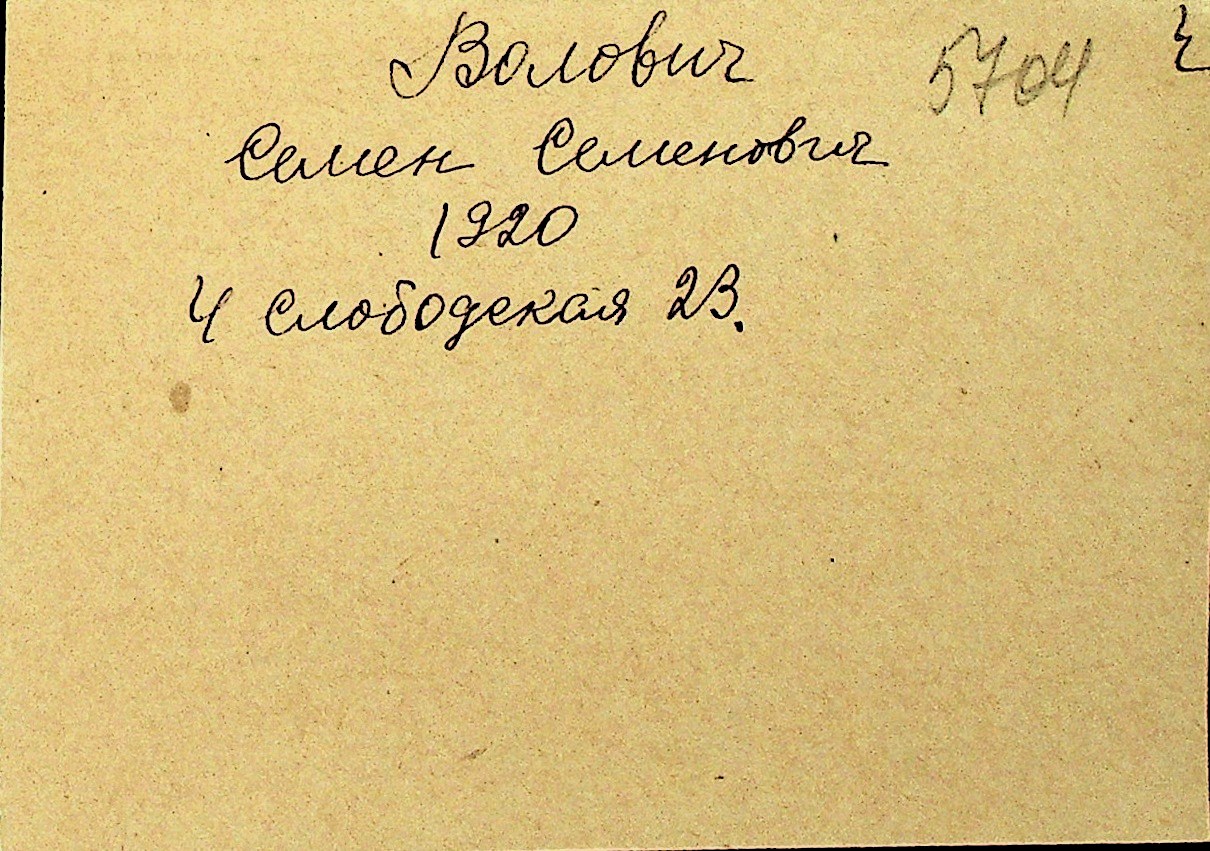 Волович 5704
Семен Семенович
1920
4 Слободская 23.